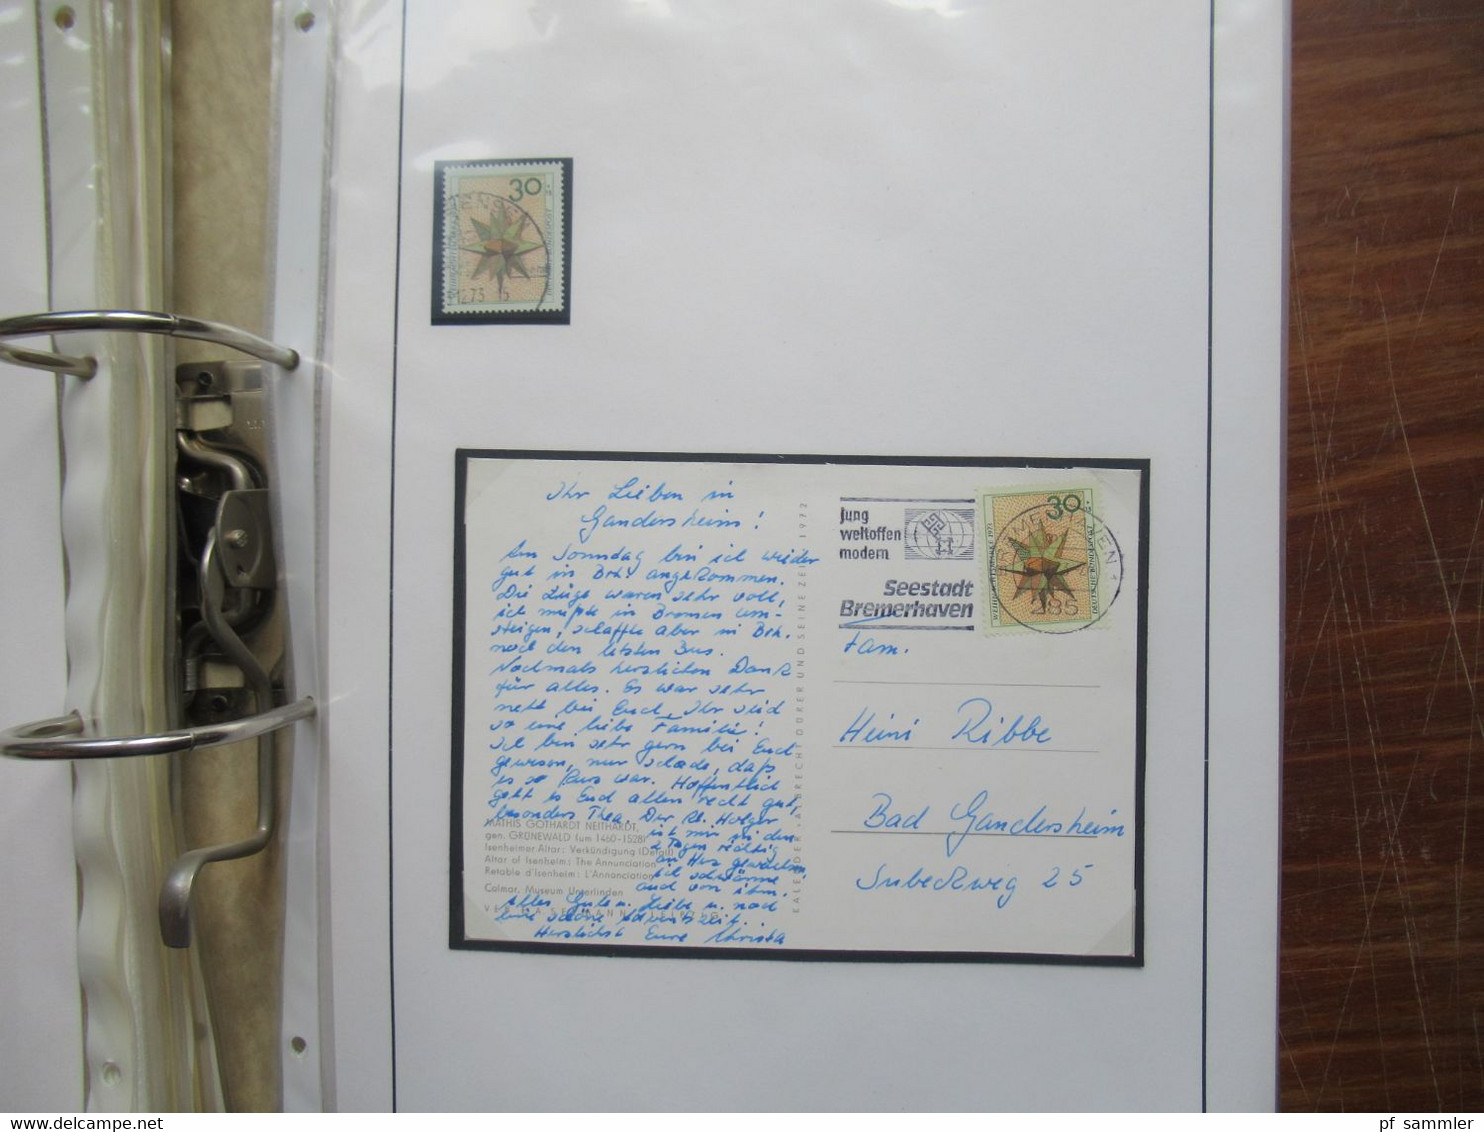 30
12.73
Ihr Lieben in
Gandersheim!
Am Sonndag bin ich wieder
gut in Brh. angekommen.
Die Züge waren sehr voll,
ich mußte in Bremen um-
steigen, schaffte aber in Brh.
noch den letzten Bus.
Nochmals herzlichen Dank
für alles. Es war sehr
nett bei Euch, Ihr seid
so eine liebe Familie!
Ich bin sehr gern bei Euch
gewesen, nur schade, daß
es so kurz war. Hoffentlich
geht es Euch allen recht gut,
besonders Thea. Der kl. Holger
ist mir in den
2 Tagen richtig
an Herz gewachsen,
ich schwärme
auch von ihm.
Alles Gute u. Liebe u. noch
eine schöne Adventszeit.
Herzlichst Eure Christa
MATHIS GOTHARDT NEITHARDT,
gen. GRÜNEWALD (um 1460-1528)
Isenheimer Altar: Verkündigung (Detail)
Altar of Isenheim: The Annunciation
Retable d'Isenheim: L'Annonciation
Colmar, Museum Unterlinden
VERLAG SEEMANN LEIPZIG
KALENDER »ALBRECHT DÜRER UND SEINE ZEIT« 1972
Jung
weltoffen
modern
Seestadt
Bremerhaven
30
WEIHNACHTSMARKE 1973
DEUTSCHE BUNDESPOST
BREMERHAVEN 1
285
Fam.
Heini Ribbe
Bad Gandersheim
Subeckweg 25
www.delcampe.net
pf_sammler